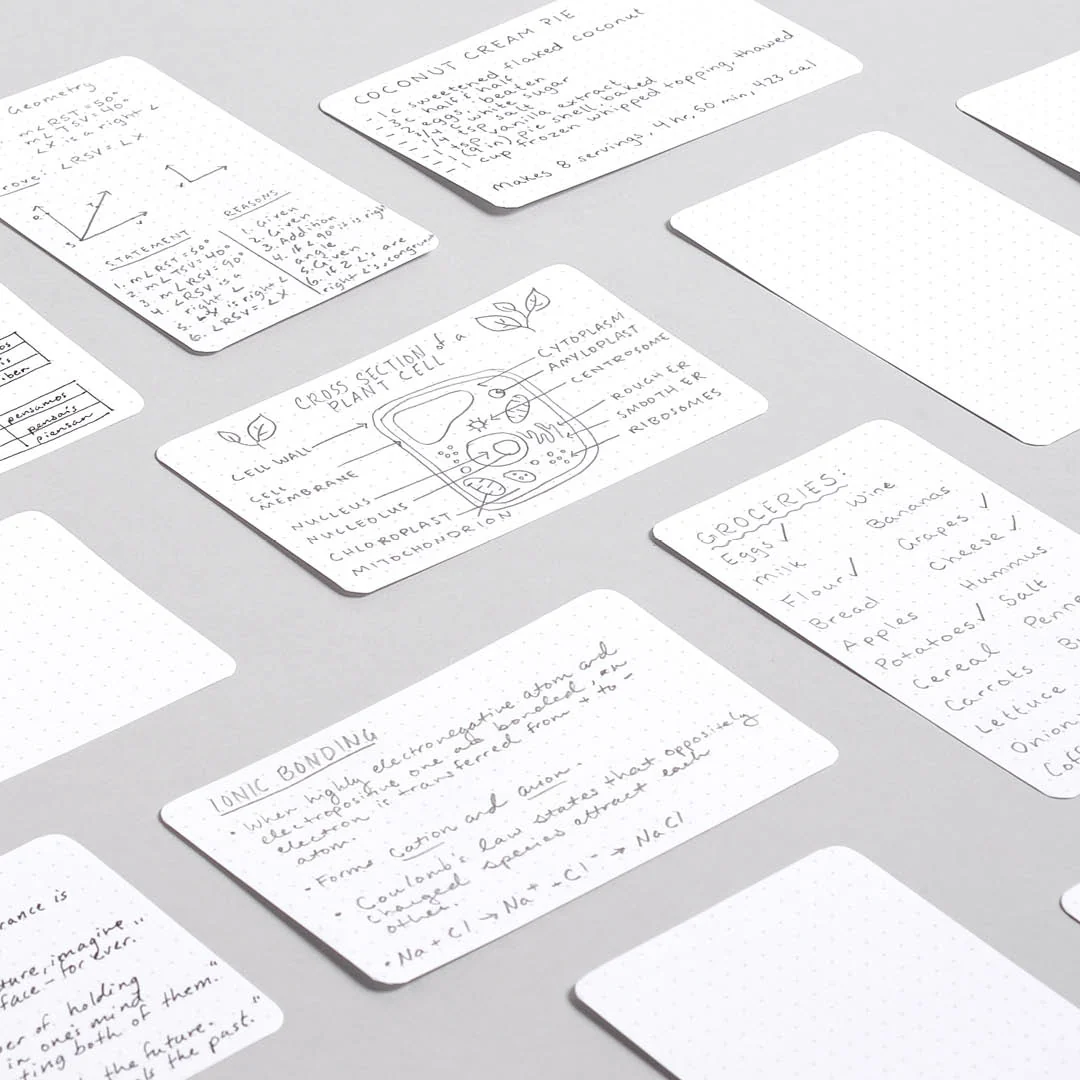 Geometry
m∠RST = 50°
m∠TSV = 40°
∠X is a right ∠
rove: ∠RSV = ∠X
R
S
V
X
STATEMENT
1. m∠RST = 50°
2. m∠TSV = 40°
3. m∠RSV = 90°
4. ∠RSV is a
right ∠
5. ∠X is right ∠
6. ∠RSV = ∠X
REASONS
1. Given
2. Given
3. Addition
4. If ∠ 90° is is right
angle
5. Given
6. If 2 ∠'s are
right ∠'s, congruen
COCONUT CREAM PIE
- 1 c sweetened flaked coconut
- 3 c half & half
- 2 eggs, beaten
- 3/4 c white sugar
- 1/4 tsp salt
- 1 tsp vanilla extract
- 1 (9 in) pie shell, baked
- 1 cup frozen whipped topping, thawed
Makes 8 servings, 4 hr, 50 min, 423 cal
os
is
ben
pensamos
pensáis
piensan
CROSS SECTION of a
PLANT CELL
CELL WALL
CELL
MEMBRANE
NUCLEUS
NUCLEOLUS
CHLOROPLAST
MITOCHONDRION
CYTOPLASM
AMYLOPLAST
CENTROSOME
ROUGH ER
SMOOTH ER
RIBOSOMES
GROCERIES:
Eggs ✓
Milk
Flour ✓
Bread
Apples
Potatoes ✓
Cereal
Carrots
Lettuce
Onion
Coff
Wine
Bananas
Grapes ✓
Cheese ✓
Hummus
Salt
Penne
B
IONIC BONDING
• When highly electronegative atom and
electropositive one are bonded, an
electron is transferred from + to -
atom.
• Forms cation and anion.
• Coulomb's law states that oppositely
charged species attract each
other.
• Na + Cl → Na⁺ + Cl⁻ → NaCl
rance is
ture, imagine
face - for ever."
er of holding
in one's mind
ting both of them."
the future.
ls the past."